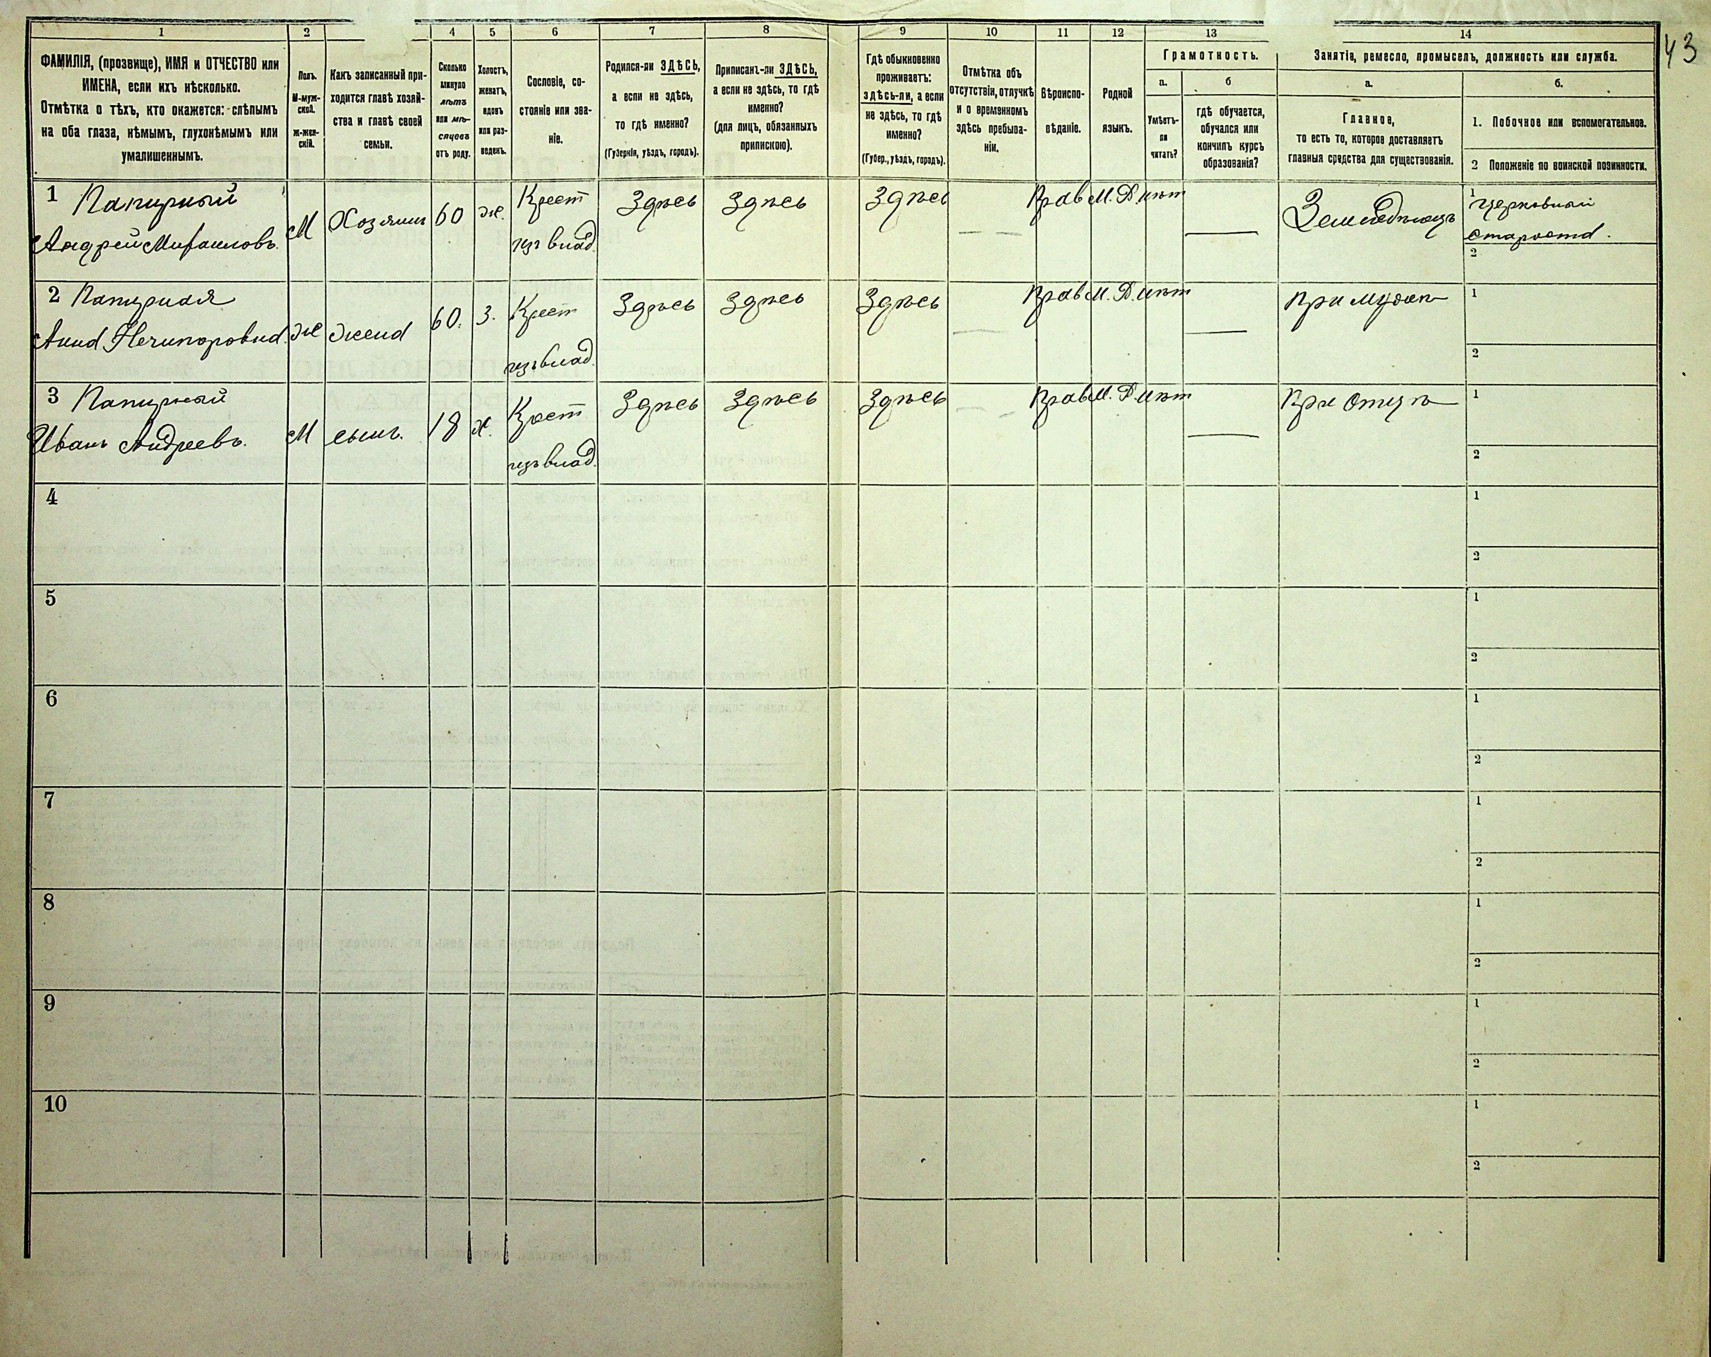 43
1 2 4 5 6 7 8 9 10 11 12 13 14
ФАМИЛІЯ, (прозвище), ИМЯ и ОТЧЕСТВО или
ИМЕНА, если ихъ нѣсколько.
Отмѣтка о тѣхъ, кто окажется: слѣпымъ
на оба глаза, нѣмымъ, глухонѣмымъ или
умалишеннымъ.
Полъ.
М-муж-
ской.
ж-жен-
скій.
Какъ записанный при-
ходится главѣ хозяй-
ства и главѣ своей
семьи.
Сколько
минуло
лѣтъ
или мѣ-
сяцевъ
отъ роду.
Холостъ,
женатъ,
вдовъ
или раз-
веденъ.
Сословіе, со-
стояніе или зва-
ніе.
Родился-ли ЗДѢСЬ,
а если не здѣсь,
то гдѣ именно?
(Губернія, уѣздъ, городъ).
Приписанъ-ли ЗДѢСЬ,
а если не здѣсь, то гдѣ
именно?
(для лицъ, обязанныхъ
припискою).
Гдѣ обыкновенно
проживаетъ:
здѣсь-ли, а если
не здѣсь, то гдѣ
именно?
(Губер., уѣздъ, городъ).
Отмѣтка объ
отсутствіи, отлучкѣ
и о временномъ
здѣсь пребыва-
ніи.
Вѣроиспо-
вѣданіе.
Родной
языкъ.
Грамотность.
а.
Умѣетъ-
ли
читать?
б
гдѣ обучается,
обучался или
кончилъ курсъ
образованія?
Занятіе, ремесло, промыселъ, должность или служба.
а.
Главное,
то есть то, которое доставляетъ
главныя средства для существованія.
б.
1. Побочное или вспомогательное.
2 Положеніе по воинской повинности.
1 Папирный
Андрей Михаиловъ.
М
Хозяинъ
60
ж.
Крест
изъ влад.
Здѣсь
Здѣсь
Здѣсь
— —
Прав
М. Р.
нѣт
—
Земледѣлецъ
1 Церковный
староста.
2
2 Папирная
Анна Нечипоровна.
ж
жена
60.
З.
Крест
изъ влад.
Здѣсь
Здѣсь
Здѣсь
— —
Прав
М. Р.
нѣт
—
При мужѣ
1
2
3 Папирный
Иванъ Андреевъ.
М
сынъ.
18
х.
Крест
изъ влад.
Здѣсь
Здѣсь
Здѣсь
— —
Прав
М. Р.
нѣт
—
При отцѣ
1
2
4
1
2
5
1
2
6
1
2
7
1
2
8
1
2
9
1
2
10
1
2